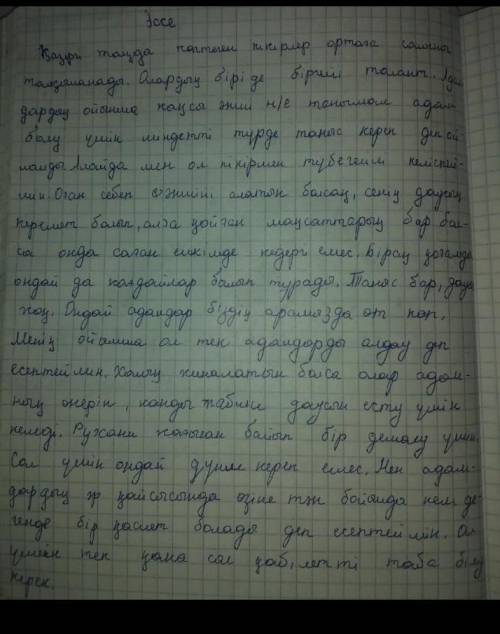 Эссе
Қазіргі таңда көптеген пікірлер ортаға салынып
талқыланады. Олардың бірі де бірегей талант. Адам
дардың ойынша жақсы әнші н/е танымал адам
болу үшін міндетті түрде таныс керек деп ой
лайды. Алайда мен ол пікірмен түбегейлі келіспей
мін. Оған себеп әншіні алатын болсақ, сенің даусың
керемет болып, алға қойған мақсаттарың бар бол-
са онда саған ешкімде кедергі емес. Бірақ қоғамда
ондай да жағдайлар болып тұрады. Таныс бар, дауыс
жоқ. Ондай адамдар біздің арамызда өт көп.
Менің ойымша ол тек адамдарды алдау деп
есептеймін. Халық жиналатын болса олар адам-
ның өнерін, жанды табиғи даусын есту үшін
келеді. Рухани жағынан байып бір демалу үшін.
Сол үшін ондай дүние керек емес. Мен адам-
дардың әр қайсысында өзіне тән бойында кем де-
генде бір қасиет болады деп есептеймін. Ол
үшін тек қана сол қабілетті таба білу
керек.